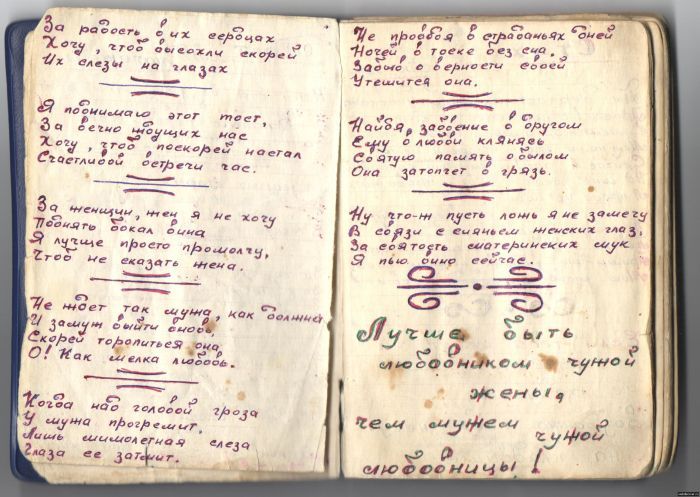 За радость в их сердцах
Хочу, чтоб высохли скорей
Их слезы на глазах
Я поднимаю этот тост,
За вечно ждущих нас
Хочу, чтоб поскорей настал
Счастливой встречи час.
За женщин, жен я не хочу
Поднять бокал вина
Я лучше просто промолчу,
Чтоб не сказать жена.
Не ждет так мужа, как должна
И замуж выйти вновь
Скорей торопиться она
О! Как мелка любовь.
Когда над головой гроза
У мужа прогремит.
Лишь мимолетная слеза
Глаза ее затмит.
Не проведя в страданьях дней
Ночей в тоске без сна.
Забыв о верности своей
Утешится она.
Найдя забвение в другом
Ему о любви клянясь
Святую память о былом
Она затопчет в грязь.
Ну что-ж пусть ложь я не замечу
В связи с сияньем женских глаз,
За святость материнских мук
Я пью вино сейчас.
Лучше быть
любовником чужой
жены,
чем мужем
чужой
любовницы!